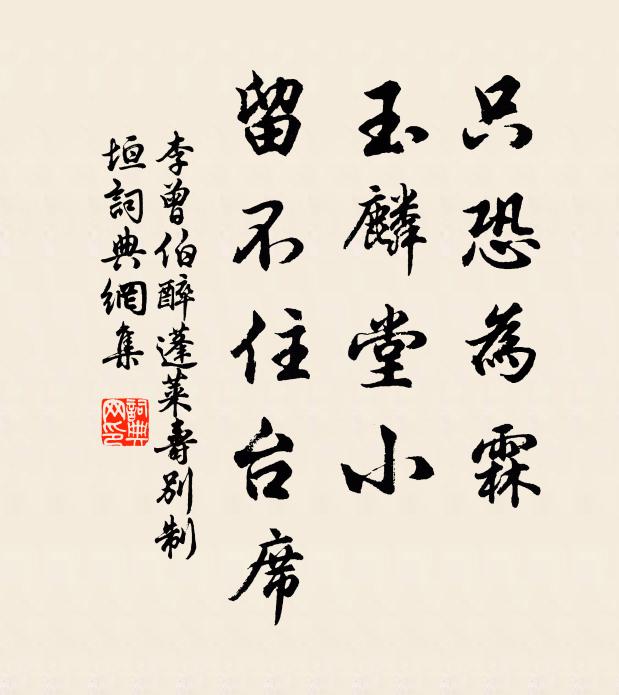 只恐為霖
玉麟堂小
留不住台席
李曾伯醉蓬萊壽別制
垣詞典網集
詞典
网印